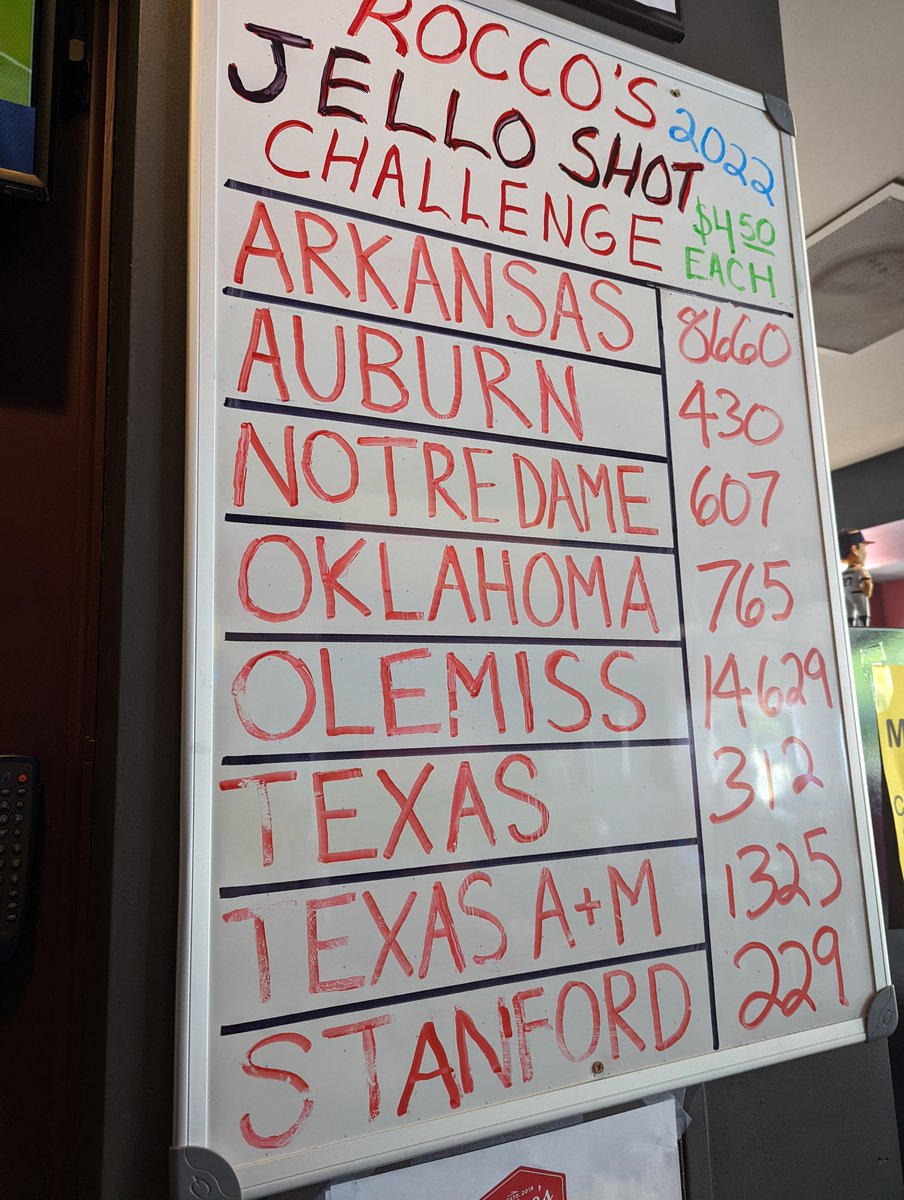 ROCCO'S 2022
JELLO SHOT
CHALLENGE
$4.50
EACH
ARKANSAS 8660
AUBURN 430
NOTRE DAME 607
OKLAHOMA 765
OLE MISS 14629
TEXAS 312
TEXAS A+M 1325
STANFORD 229